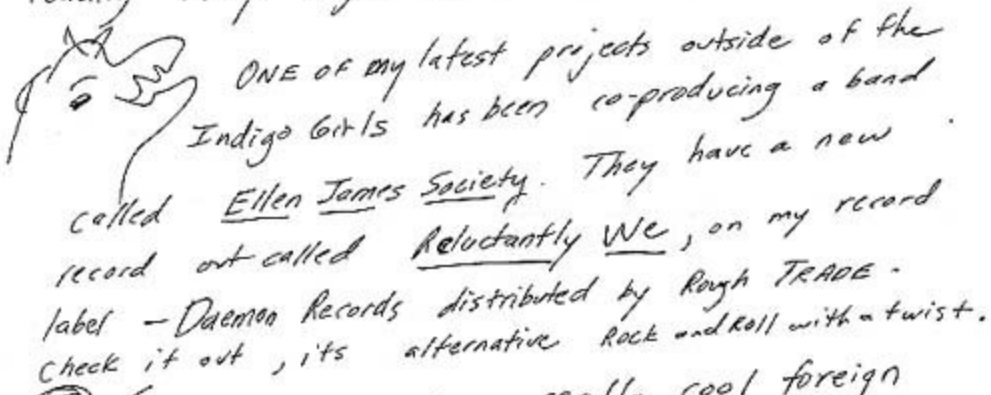 ONE OF my latest projects outside of the
Indigo Girls has been co-producing a band
called Ellen James Society. They have a new
record out called Reluctantly We, on my record
label - Daemon Records distributed by Rough TRADE.
Check it out, its alternative Rock and Roll with a twist.
really cool foreign